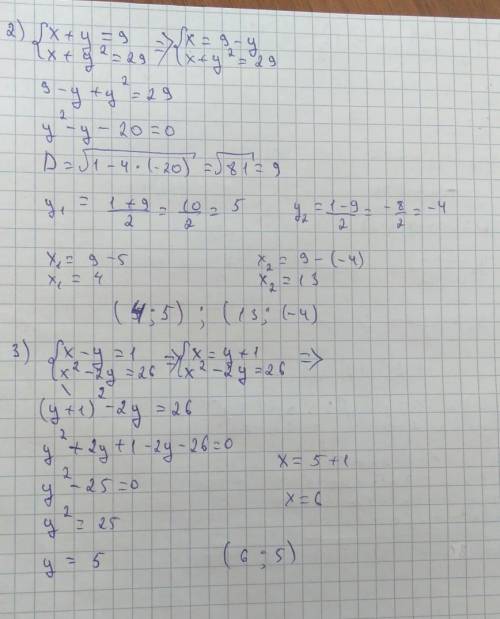 2) {x + y = 9 => {x = 9 - y
x + y² = 29 x + y² = 29
9 - y + y² = 29
y² - y - 20 = 0
D = √1 - 4 · (-20) = √81 = 9
y₁ = 1 + 9 / 2 = 10 / 2 = 5 y₂ = 1 - 9 / 2 = -8 / 2 = -4
x₁ = 9 - 5 x₂ = 9 - (-4)
x₁ = 4 x₂ = 13
(4; 5) ; (13; (-4)
3) {x - y = 1 => {x = y + 1 =>
x² - 2y = 26 x² - 2y = 26
(y + 1)² - 2y = 26
y² + 2y + 1 - 2y - 26 = 0
x = 5 + 1
y² - 25 = 0
x = 6
y² = 25
y = 5 (6; 5)